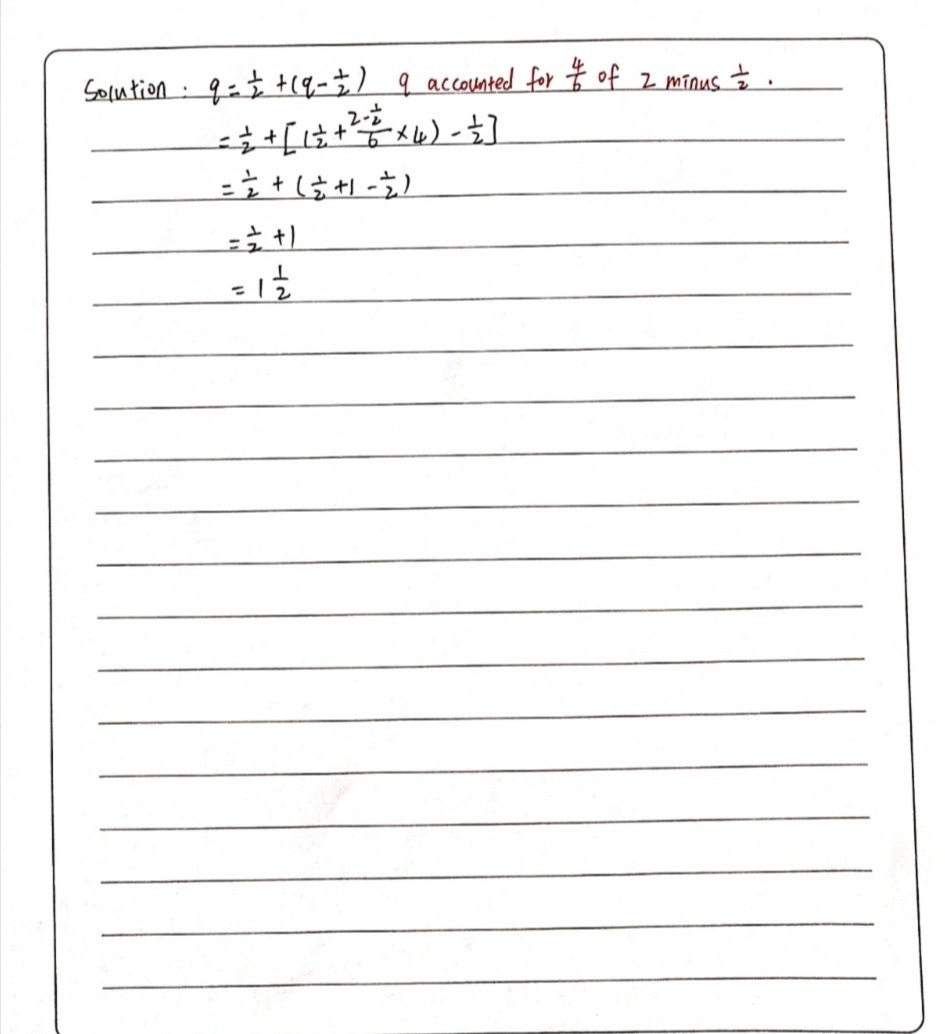 Solution: q = 1/2 + (q - 1/2) q accounted for 4/6 of 2 minus 1/2.
= 1/2 + [(1/2 + (2 - 1/2)/6 × 4) - 1/2]
= 1/2 + (1/2 + 1 - 1/2)
= 1/2 + 1
= 1 1/2